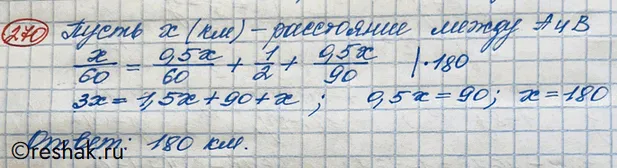 270 Пусть x (км) – расстояние между А и В
x/60 = 0,5x/60 + 1/2 + 0,5x/90 |·180
3x = 1,5x + 90 + x ; 0,5x = 90; x = 180
Ответ: 180 км.
©reshak.ru